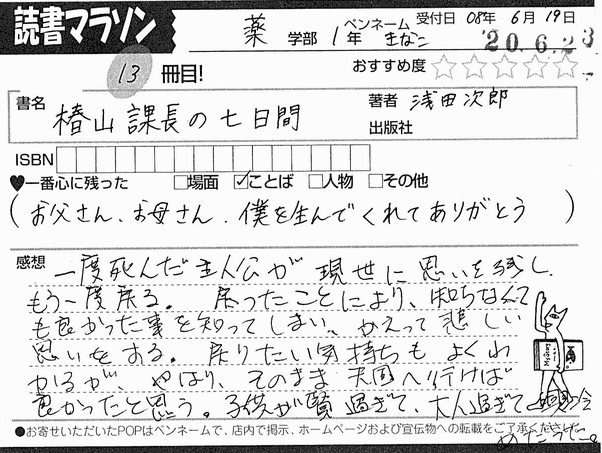 読書マラソン
薬 学部 1年 ペンネーム きなこ 受付日 08年 6月 19日
20.6.23
13 冊目! おすすめ度 ☆☆☆☆☆
書名 椿山課長の七日間 著者 浅田次郎
出版社
ISBN
♥一番心に残った □場面 ☑ことば □人物 □その他
(お父さん、お母さん、僕を生んでくれてありがとう)
感想 一度死んだ主人公が現世に思いを残し
もう一度戻る。戻ったことにより、知らなくて
も良かった事を知ってしまい、かえって悲しい
思いをする。戻りたい気持ちもよくわ
かるが、やはり、そのまま天国へ行けば
良かったと思う。子供が賢過ぎて、大人過ぎて
●お寄せいただいたPOPはペンネームで、店内で掲示、ホームページおよび宣伝物への転載をご了承ください。